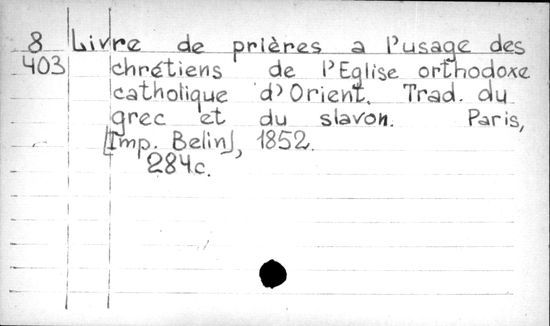 8 Livre de prières a l'usage des
403 chrétiens de l'Eglise orthodoxe
catholique d'Orient. Trad. du
grec et du slavon. Paris,
[Imp. Belin], 1852.
284c.